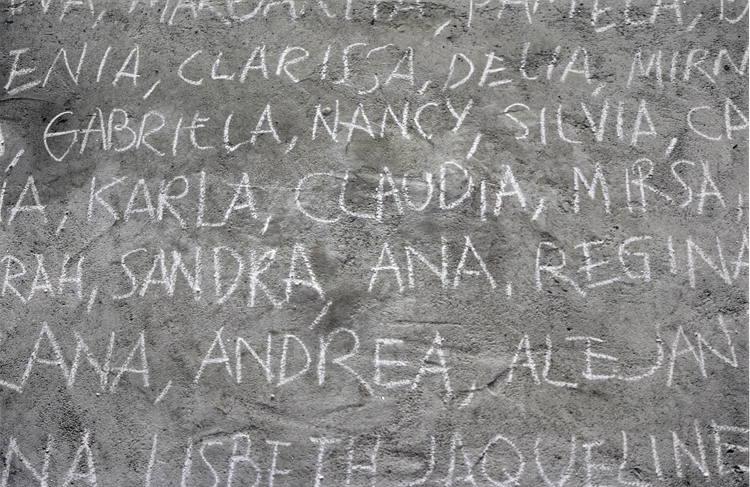 MARGARITA, PAMELA, D
ENIA, CLARISSA, DELIA, MIRN
GABRIELA, NANCY, SILVIA, CA
IA, KARLA, CLAUDIA, MIRSA,
RAH, SANDRA, ANA, REGINA
LANA, ANDREA, ALEJAN
NA LISBETH JAQUELINE